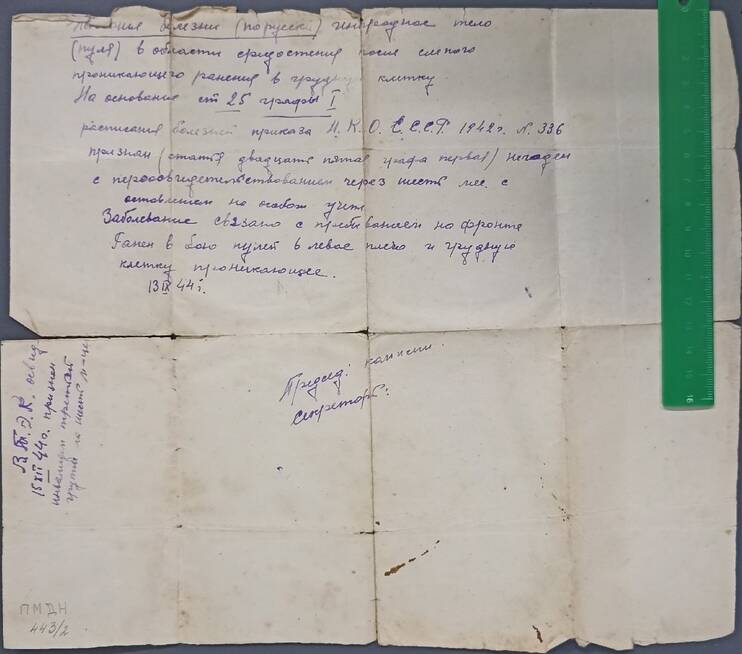 Название болезни (порусски) инородное тело
(пуля) в области средостения после слепого
проникающего ранения в грудную клетку
На основание ст 25 графы I
расписания болезней приказа Н. К. О. С.С.С.Р. 1942 г. N. 336
признан (статья двадцать пятая графа первая) негоден
с переосвидетельствованием через шесть мес. с
оставлением на особом учете
Заболевание связано с пребыванием на фронте
Ранен в бою пулей в левое плечо и грудную
клетку проникающее.
13 IX 44 г.
Председ: комисии
Секретарь:
В.Т.Э.К. освид.
15 XII 44 г. признан
инвалидом третьей
группы на шесть м-це
ПМДН
443/2